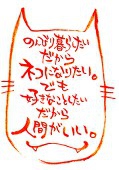 のんびり暮らしたい
だから
ネコになりたい。
でも
好きなことしたい
だから
人間がいい。